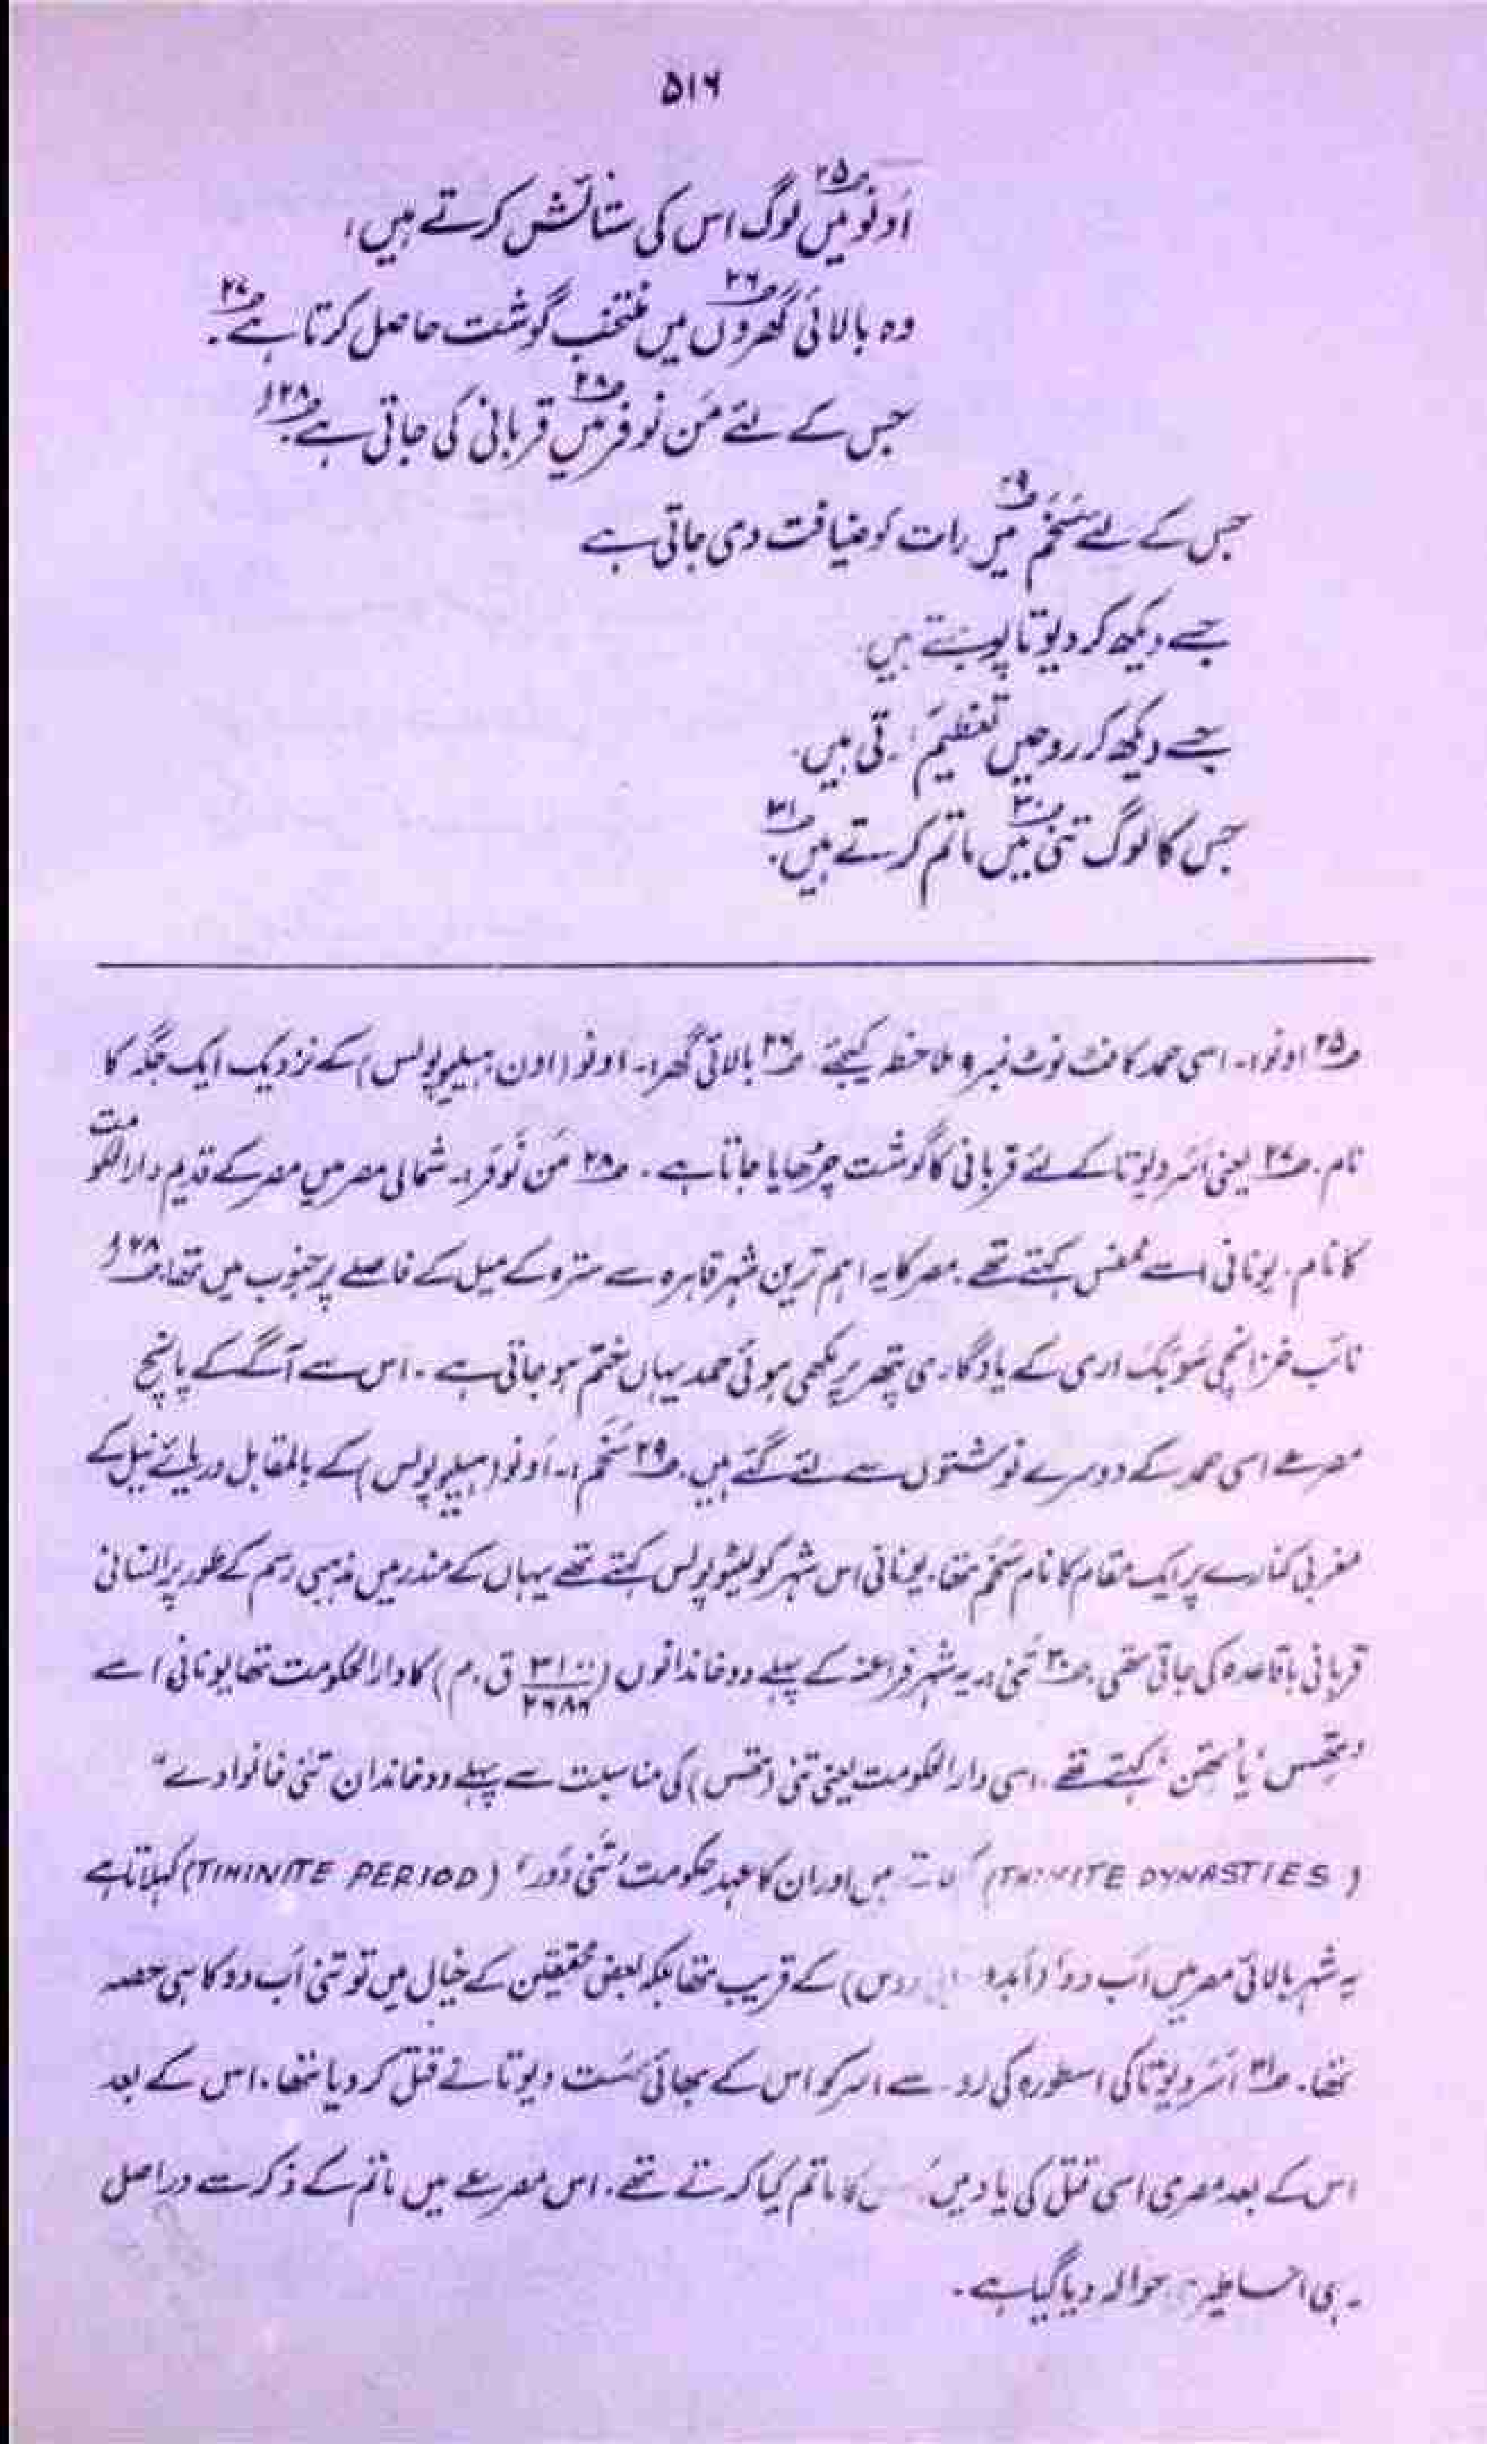 ۵۱۶
اَونُو۲۵ؔ میں لوگ اس کی ستائش کرتے ہیں،
وہ بالائی گھروں۲۶ؔ میں منتخب گوشت حاصل کرتا ہے۲۷ؔ۔
جس کے لئے مَن نوفر۲۸ؔ میں قربانی کی جاتی ہے۔۲۸ؔا
جس کے لئے سَخَم۲۹ؔ میں رات کو ضیافت دی جاتی ہے
جسے دیکھ کر دیوتا پوجتے ہیں۔
جسے دیکھ کر روحیں تعظیم کرتی ہیں۔
جس کا لوگ تنی۳۰ؔ میں ماتم کرتے ہیں۳۱ؔ۔
۲۵ؔ اونو:۔ اسی حمد کا فٹ نوٹ نمبر ۹ ملاحظہ کیجئے ۲۶ؔ بالائی گھر:۔ اونو (اون، ہیلیوپولس) کے نزدیک ایک جگہ کا
نام۔ ۲۷ؔ یعنی اَسَر دیوتا کے لئے قربانی کا گوشت چڑھایا جاتا ہے۔ ۲۸ؔ مَن نَوفَر:۔ شمالی مصر میں مصر کے قدیم دارالحکومت
کا نام۔ یونانی اسے ممفس کہتے تھے۔ مصر کا یہ اہم ترین شہر قاہرہ سے سترہ کے میل کے فاصلے پر جنوب میں تھا۔ ۲۸ؔا
نائب خزانچی سَوبَک اری کے یادگاری پتھر پر لکھی ہوئی حمد یہاں ختم ہو جاتی ہے۔ اس سے آگے کے پانچ
مصرعے اسی حمد کے دوسرے نوشتوں سے لئے گئے ہیں۔ ۲۹ؔ سَخَم:۔ اَونو (ہیلیوپولس) کے بالمقابل دریائے نیل کے
مغربی کنارے پر ایک مقام کا نام سَخَم تھا۔ یونانی اس شہر کو لیٹوپولس کہتے تھے یہاں کے مندر میں مذہبی رسم کے طور پر انسانی
قربانی باقاعدہ کی جاتی تھی۔ ۳۰ؔ تَنی:۔ یہ شہر فراعنہ کے پہلے دو خاندانوں (۳۱۰۰/۲۶۸۶ ق۔م) کا دارالحکومت تھا یونانی اسے
'تھِس' یا 'تھِن' کہتے تھے۔ اسی دارالحکومت یعنی تنی (تھس) کی مناسبت سے پہلے دو خاندان "تنی خانوادے"
(THINITE DYNASTIES) کہلاتے ہیں اور ان کا عہد حکومت 'تنی دَور' (THINITE PERIOD) کہلاتا ہے
یہ شہر بالائی مصر میں اَب دو (اَبدو کے قریب تھا بلکہ بعض محققین کے خیال میں تو تنی اَب دو کا ہی حصہ
تھا۔ ۳۱ؔ اَسَر دیوتا کی اسطورہ کی رو سے اسر کو اس کے بھائی سَت دیوتا نے قتل کر دیا تھا۔ اس کے بعد
اس کے بعد مصری اسی قتل کی یاد میں کا ماتم کیا کرتے تھے۔ اس مصرعے میں ماتم کے ذکر سے دراصل
حوالہ دیا گیا ہے۔